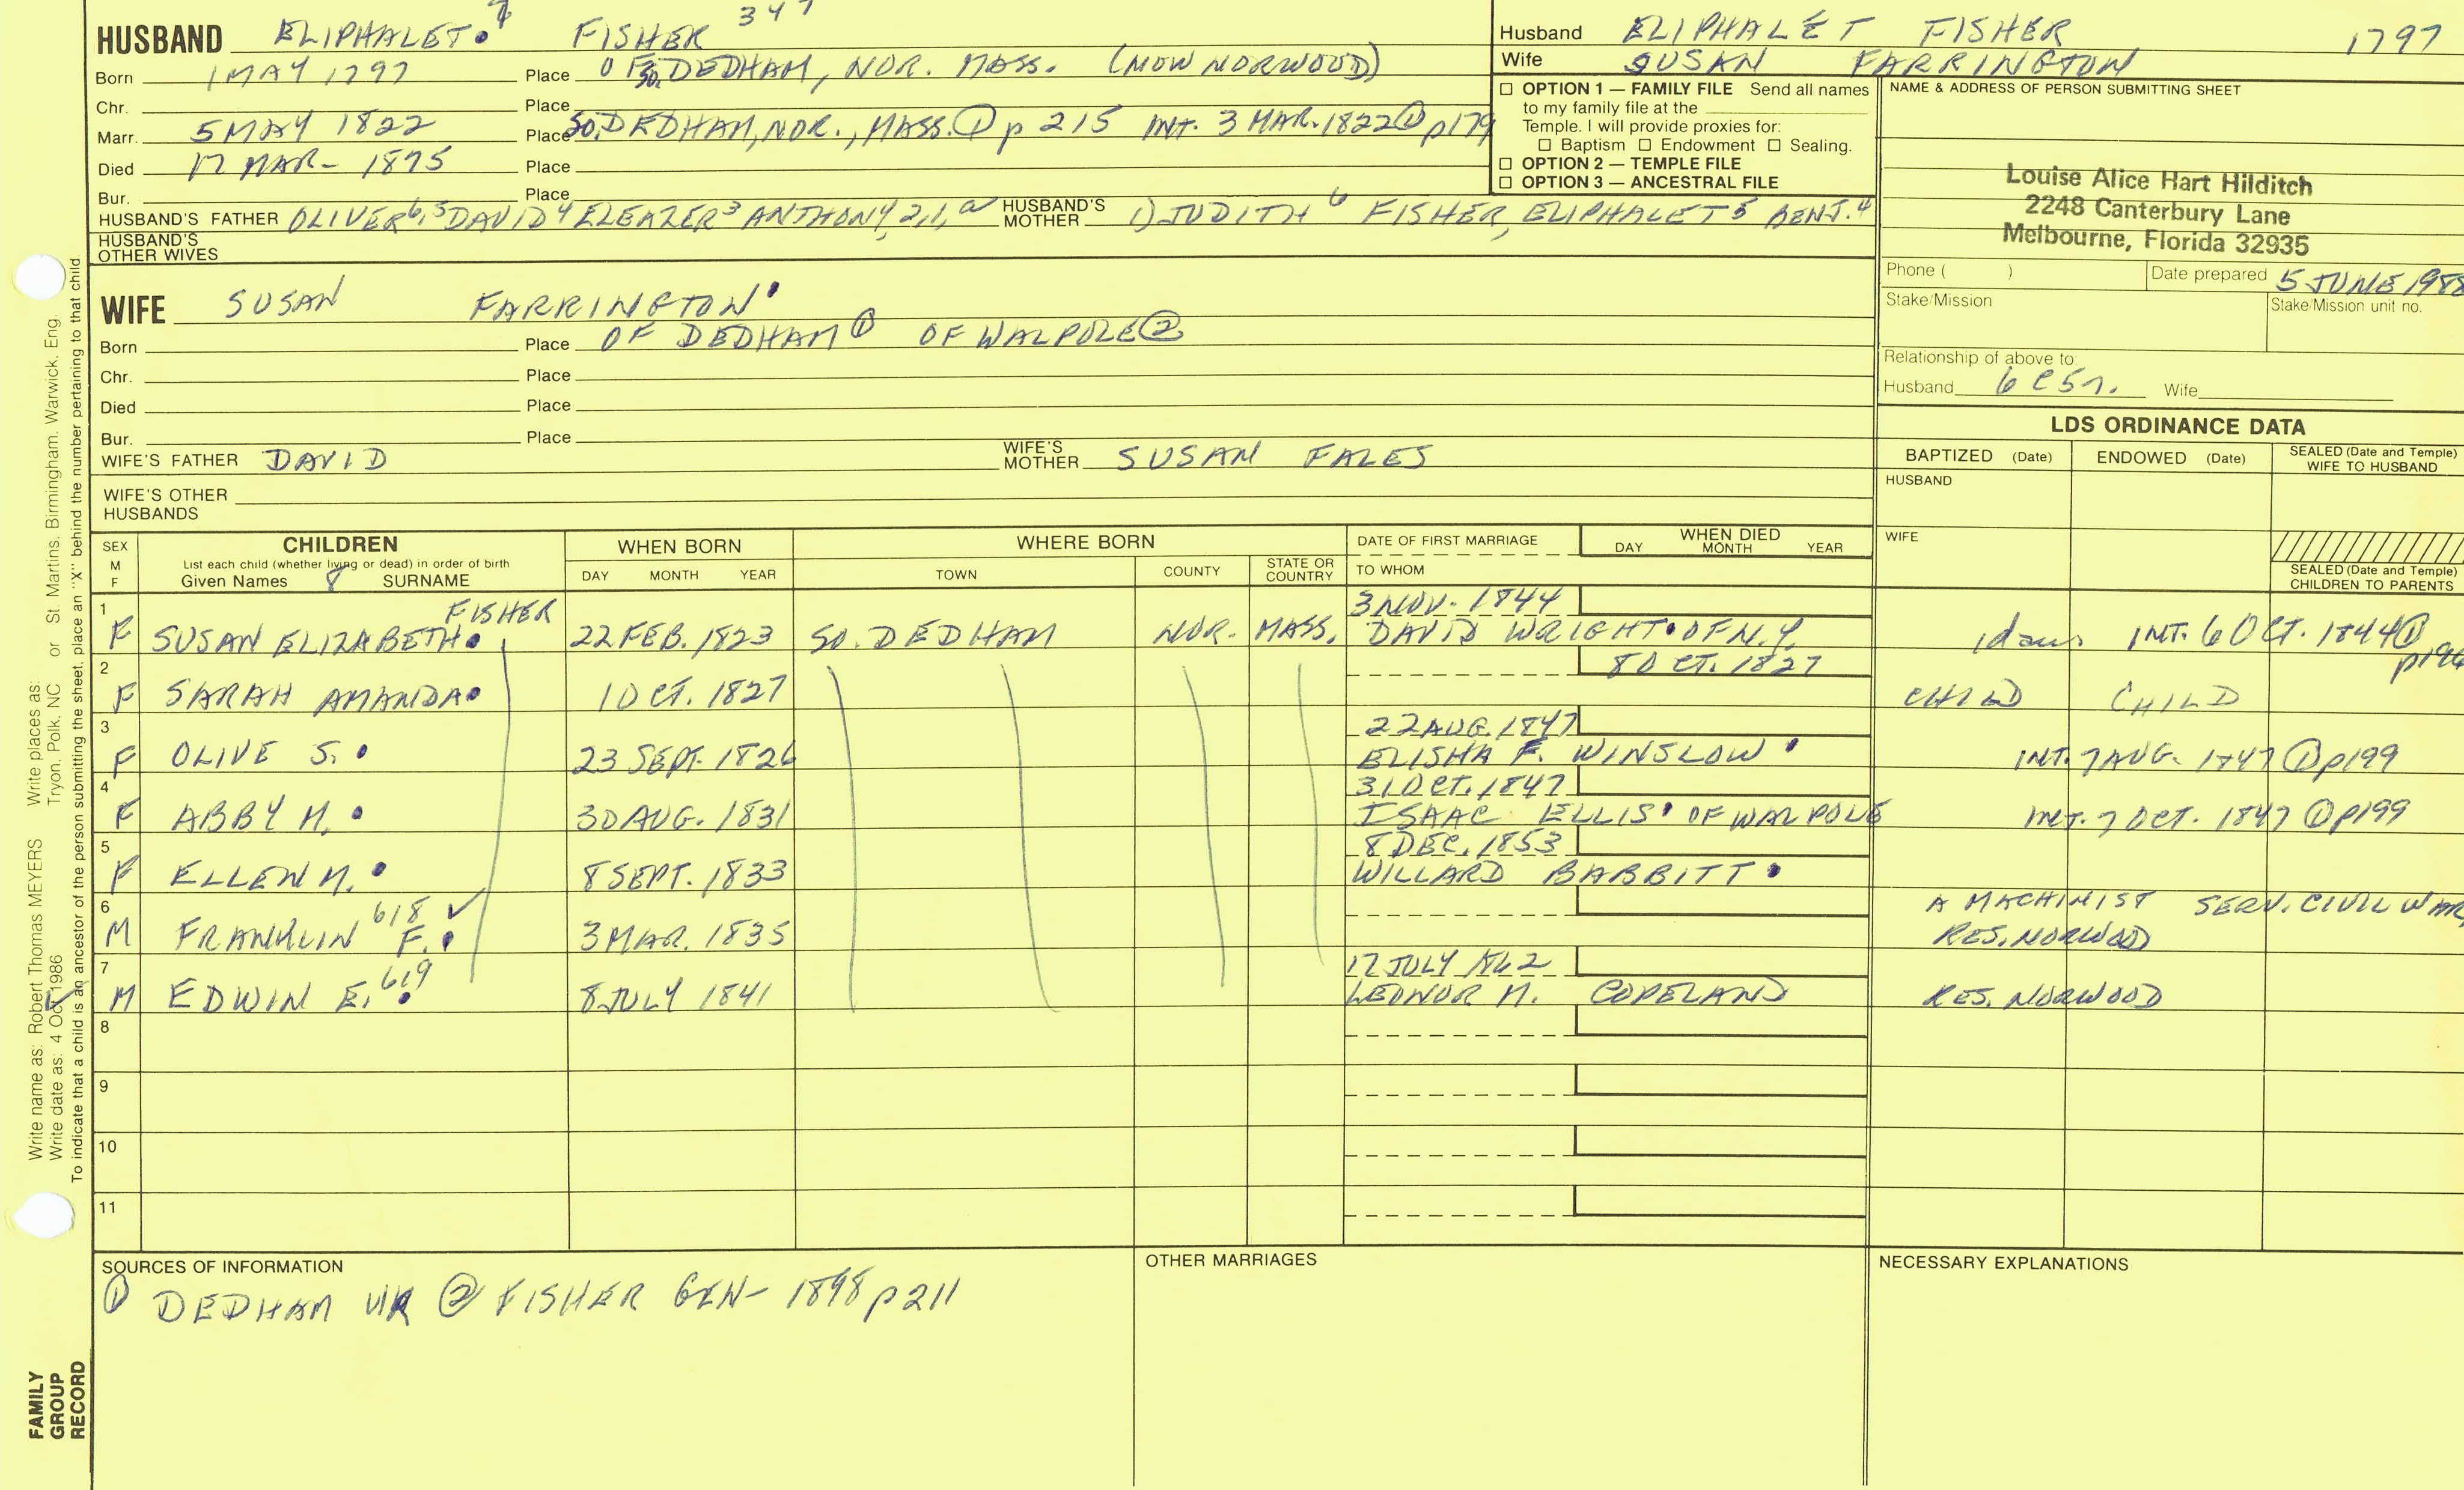 HUSBAND ELIPHALET. 7 FISHER 347
Born 1 MAY 1797 Place OF SO. DEDHAM, NOR. MASS. (NOW NORWOOD)
Chr. Place
Marr. 5 MAY 1822 Place SO. DEDHAM, NOR., MASS. ① p 215 INT. 3 MAR. 1822 ① p179
Died 17 MAR- 1875 Place
Bur. Place
HUSBAND'S FATHER OLIVER 6, 5 DAVID 4 ELEAZER 3 ANTHONY 2,1,a HUSBAND'S MOTHER 1) JUDITH 6 FISHER, ELIPHALET 5 BENJ. 4
HUSBAND'S OTHER WIVES
Husband ELIPHALET FISHER 1797
Wife SUSAN FARRINGTON
☐ OPTION 1 — FAMILY FILE Send all names
to my family file at the
Temple. I will provide proxies for:
☐ Baptism ☐ Endowment ☐ Sealing.
☐ OPTION 2 — TEMPLE FILE
☐ OPTION 3 — ANCESTRAL FILE
NAME & ADDRESS OF PERSON SUBMITTING SHEET
Louise Alice Hart Hilditch
2248 Canterbury Lane
Melbourne, Florida 32935
Phone ( ) Date prepared 5 JUNE 1988
Stake/Mission Stake/Mission unit no.
Relationship of above to:
Husband 6 C 5 r. Wife
WIFE SUSAN FARRINGTON
Born Place OF DEDHAM ① OF WALPOLE ②
Chr. Place
Died Place
Bur. Place
WIFE'S FATHER DAVID WIFE'S MOTHER SUSAN FALES
WIFE'S OTHER HUSBANDS
LDS ORDINANCE DATA
BAPTIZED (Date) ENDOWED (Date) SEALED (Date and Temple) WIFE TO HUSBAND
HUSBAND
WIFE
SEALED (Date and Temple) CHILDREN TO PARENTS
SEX M F CHILDREN WHEN BORN WHERE BORN DATE OF FIRST MARRIAGE WHEN DIED
List each child (whether living or dead) in order of birth DAY MONTH YEAR
Given Names 8 SURNAME DAY MONTH YEAR TOWN COUNTY STATE OR COUNTRY TO WHOM
1 FISHER 3 NOV. 1844
F SUSAN ELIZABETH. 22 FEB. 1823 SO. DEDHAM NOR. MASS. DAVID WRIGHT OF N.Y. 1 dau. INT. 6 OCT. 1844 ①
2 8 OCT. 1827
F SARAH AMANDA 1 OCT. 1827 CHILD CHILD
3 22 AUG. 1847
F OLIVE S. 23 SEPT. 1826 ELISHA F. WINSLOW INT. 7 AUG. 1847 ① p199
4 31 OCT. 1847
F ABBY M. 30 AUG. 1831 ISAAC ELLIS OF WALPOLE INT. 7 OCT. 1847 ① p199
5 8 DEC. 1853
F ELLEN M. 8 SEPT. 1833 WILLARD BABBITT
6 618 ✓ A MACHINIST SERV. CIVIL WAR
M FRANKLIN F. 3 MAR. 1835 RES. NORWOOD
7 619 17 JULY 1862
M EDWIN E. 8 JULY 1841 LEONOR M. COPELAND RES. NORWOOD
8
9
10
11
SOURCES OF INFORMATION
① DEDHAM VR ② FISHER GEN- 1898 p 211
OTHER MARRIAGES
NECESSARY EXPLANATIONS
Write name as: Robert Thomas MEYERS Write places as:
Write date as: 4 Oct 1986 Tryon, Polk, NC or St. Martins, Birmingham, Warwick, Eng.
To indicate that a child is an ancestor of the person submitting the sheet, place an "X" behind the number pertaining to that child
FAMILY
GROUP
RECORD